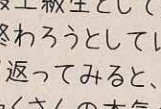 上級生として
終わろうとしてい
返ってみると、
くさんの本気